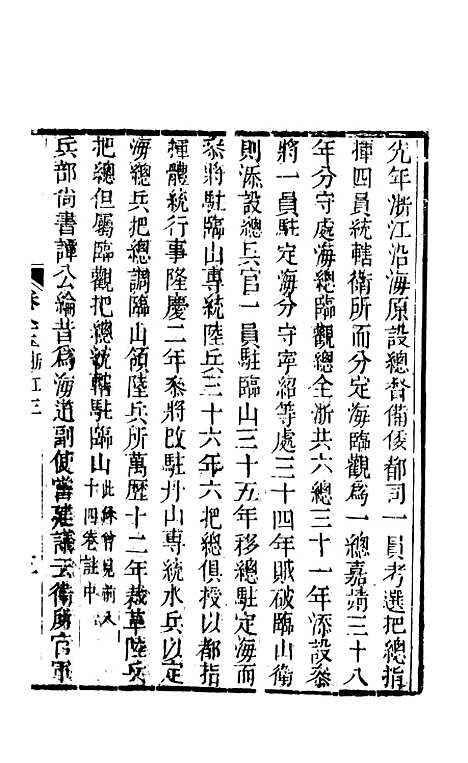 先年浙江沿海原設總督備倭都司一員考選把總指
揮四員統轄衛所而分定海臨觀爲一總嘉靖三十八
年分守處海總臨觀總全浙共六總三十一年添設叅
將一員駐定海分守寧紹等處三十四年賊破臨山衛
則添設總兵官一員駐臨山三十五年移總駐定海而
叅將駐臨山專統陸兵三十六年六把總俱授以都指
揮體統行事隆慶二年叅將改駐丹山專統水兵以定
海總兵把總調臨山領陸兵所萬歷十二年裁革陸兵
把總但屬臨觀把總統轄駐臨山此條曾見前
十四卷註中
兵部尚書譚公綸昔爲海道副使嘗建議云衛所官軍
浙江三